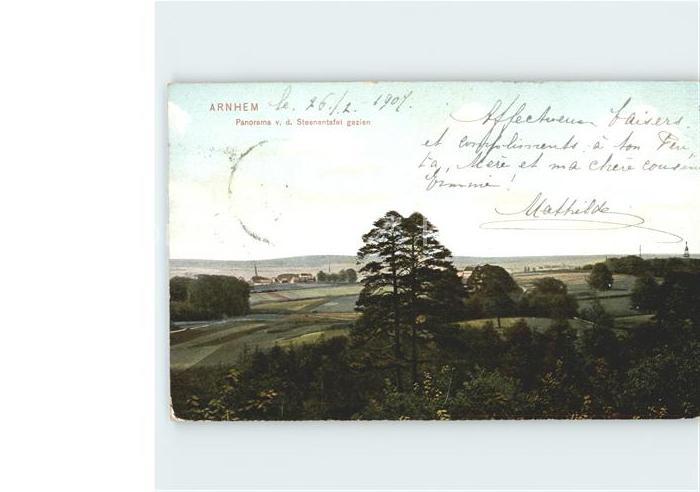 ARNHEM le 26/2. 1907.
Panorama v. d. Steenentafel gezien
Affectueux baisers
et compliments à ton
ta, Mère et ma chère
!
Mathilde